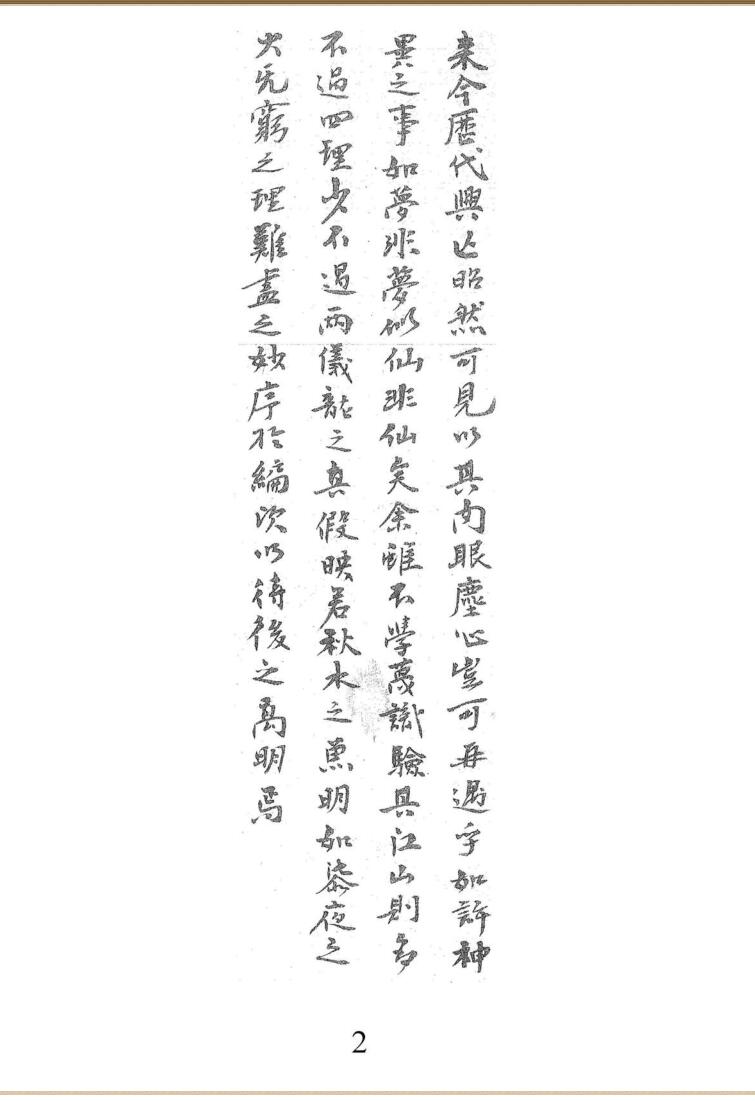 来今歷代興亡昭然可見以其肉眼塵心豈可再遇乎如許神
異之事如夢非夢似仙非仙矣余雖不學蔑識驗其江山則多
不過四理少不過兩儀龍之真假映若秋水之魚明如漆夜之
火无窮之理難盡之妙序於編次以待後之高明焉
2